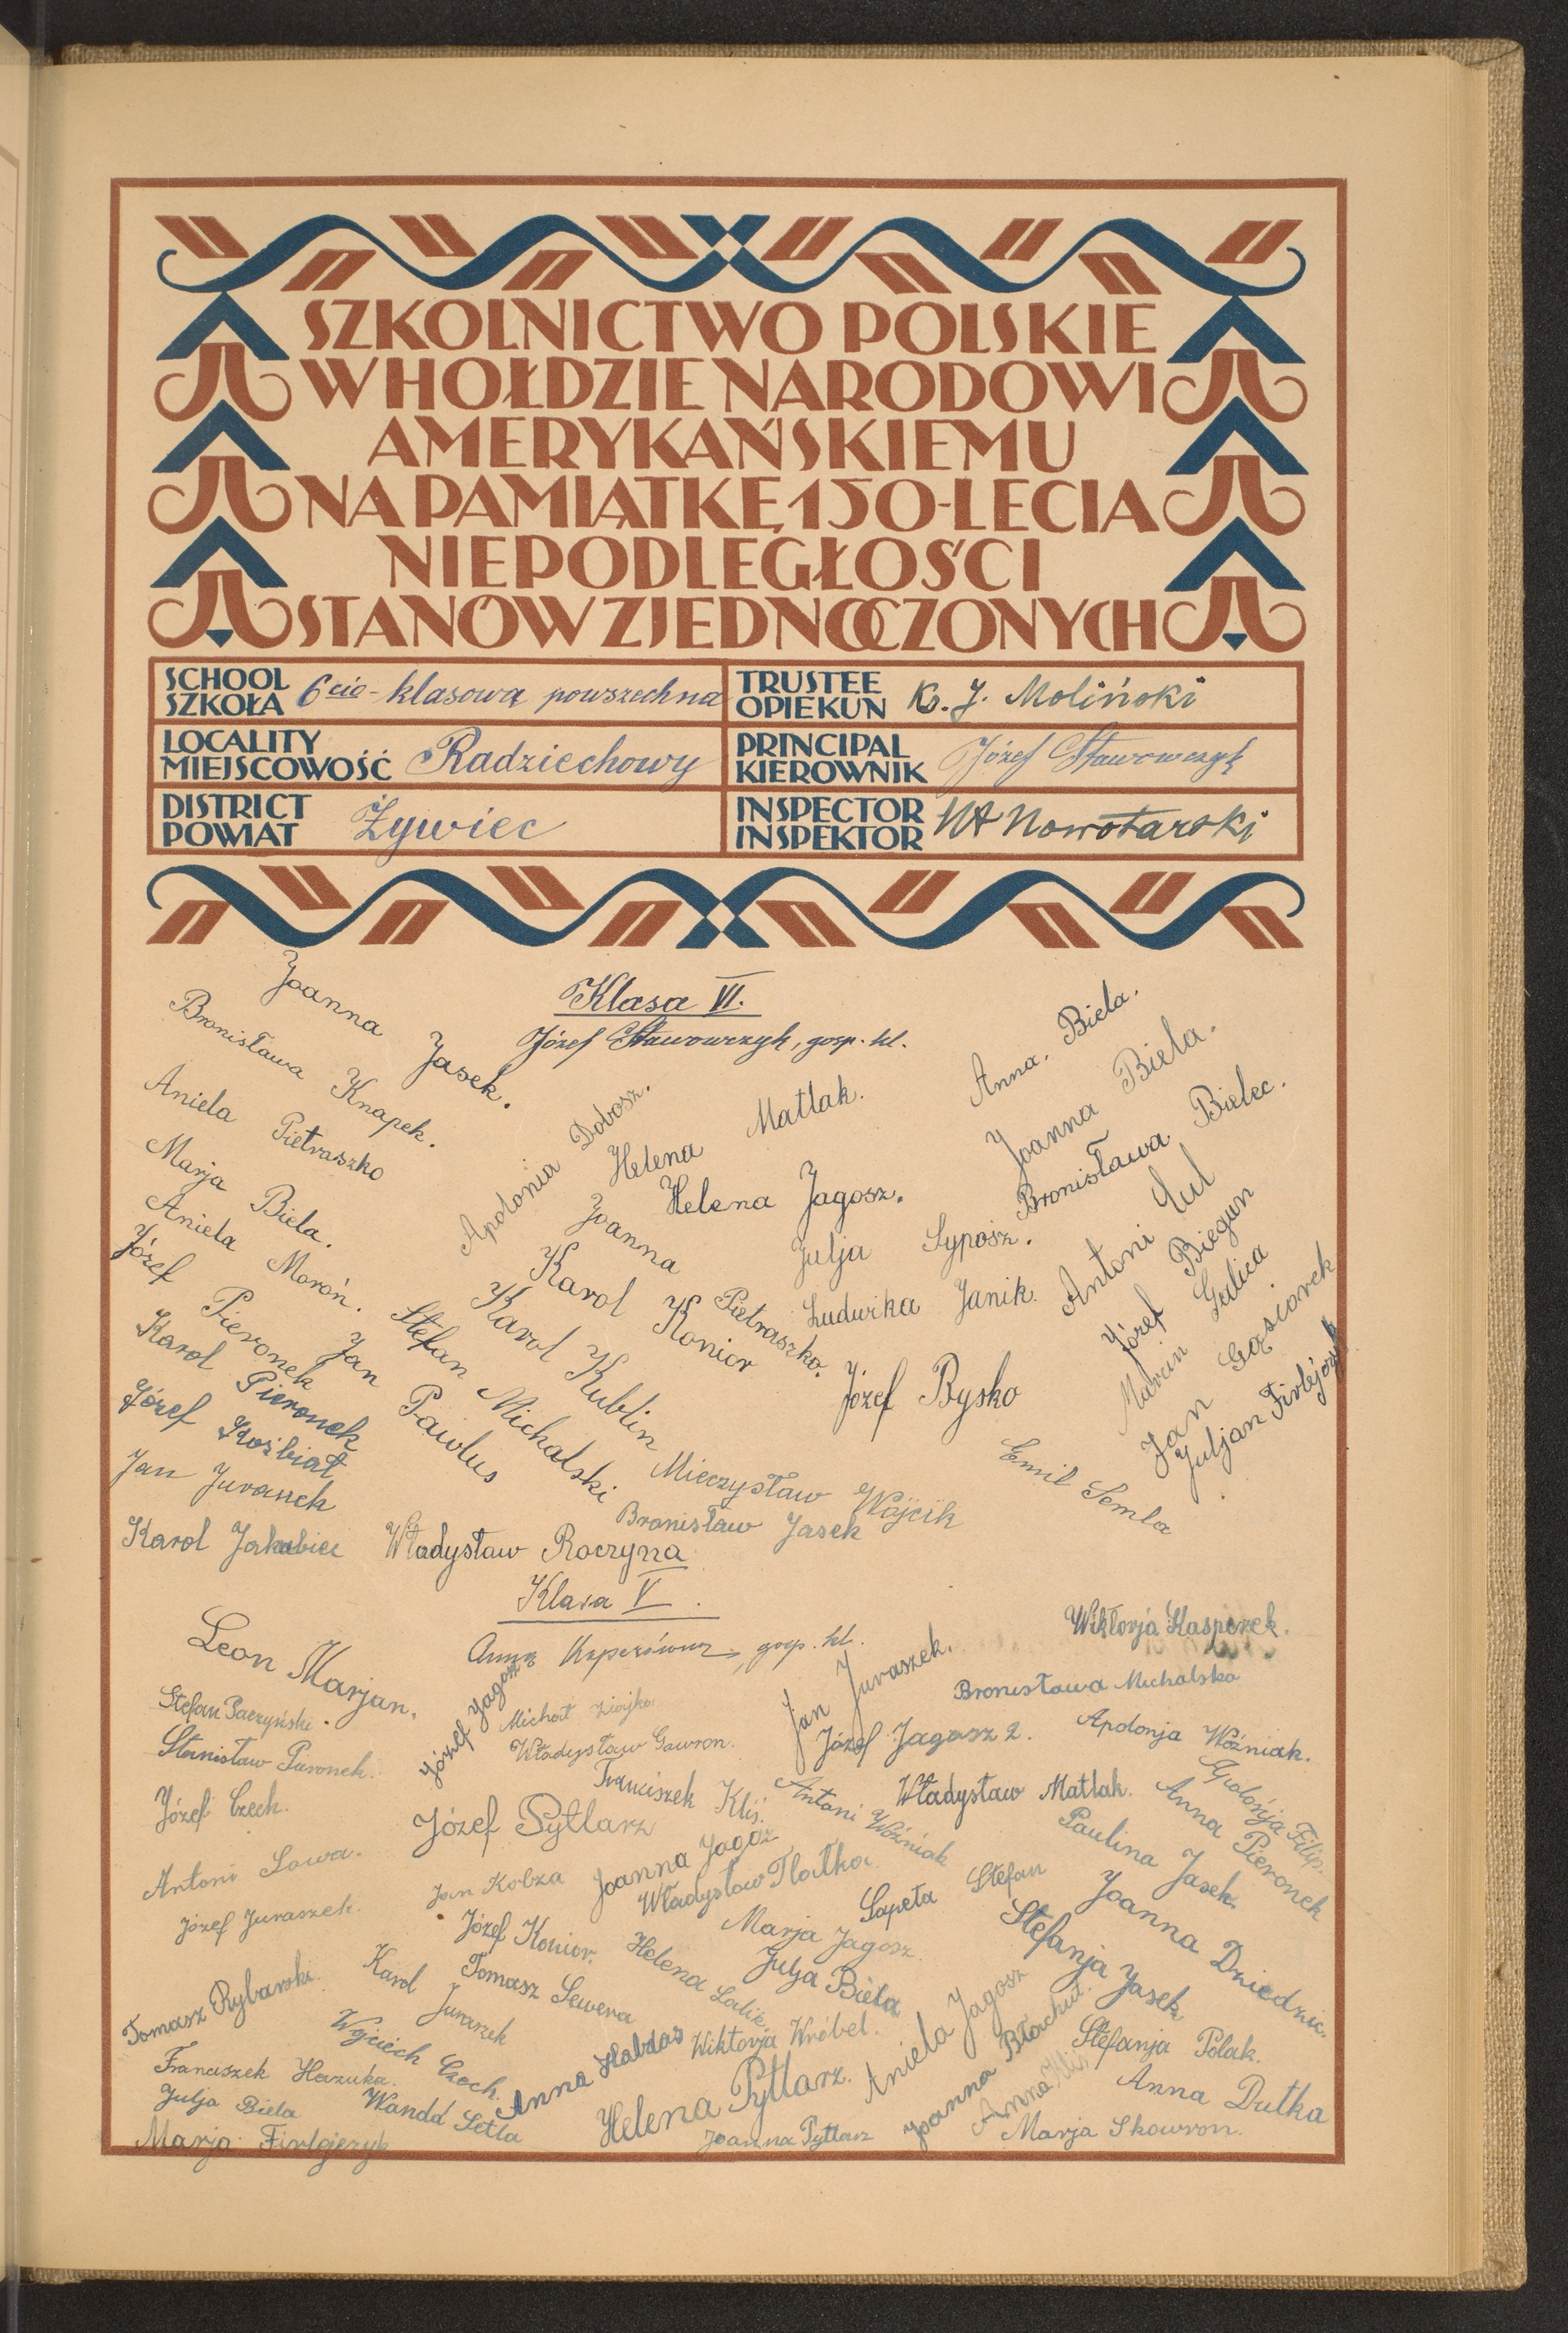 SZKOLNICTWO POLSKIE
W HOŁDZIE NARODOWI
AMERYKAŃSKIEMU
NA PAMIĄTKĘ 150-LECIA
NIEPODLEGŁOŚCI
STANÓW ZJEDNOCZONYCH
SCHOOL
SZKOŁA
6cio-klasowa powszechna
TRUSTEE
OPIEKUN
K. J. Moliński
LOCALITY
MIEJSCOWOŚĆ
Radziechowy
PRINCIPAL
KIEROWNIK
Józef Stawowczyk
DISTRICT
POWIAT
Żywiec
INSPECTOR
INSPEKTOR
Nowotarski
Klasa VI.
Józef Stawowczyk, gosp. kl.
Joanna Jasek.
Bronisława Knapek.
Aniela Pietraszko
Marja Biela.
Aniela Moroń.
Józef Pieronek
Karol Pieronek
Józef Kośbiat
Jan Juraszek
Karol Jakubiec
Apolonia Dobosz.
Helena Matlak.
Helena Jagosz.
Joanna Pietraszko.
Karol Konior
Karol Kublin
Stefan Michalski
Jan Pawlus
Władysław Roczyna
Julja Syposz.
Ludwika Janik.
Józef Bysko
Mieczysław Wójcik
Bronisław Jasek
Anna. Biela.
Joanna Biela.
Bronisława Bielec.
Antoni Gul
Józef Biegun
Marcin Galica
Jan Gąsiorek
Juljan Firlejczyk
Emil Semla
Klasa V.
Anna gosp. kl.
Leon Marjan.
Stefan Paczyński.
Stanisław Pieronek.
Józef Czech.
Antoni Sowa.
Józef Juraszek.
Tomasz Rybarski.
Franciszek Hazuka.
Julja Biela
Marja Firlejczyk
Józef Jagosz
Michał
Władysław Gawron.
Franciszek Kliś.
Józef Pytlarz
Jan Kobza
Joanna Jagosz
Władysław Tlałka
Józef Konior.
Karol Juraszek
Tomasz Sewera
Wojciech Czech.
Wanda Setla
Anna Habdas
Helena Salik.
Jan Juraszek.
Józef Jagosz 2.
Antoni Woźniak
Władysław Matlak.
Sapeta Stefan
Marja Jagosz
Julja Biela
Wiktorja Wróbel.
Helena Pytlarz.
Joanna Pytlarz
Aniela Jagosz
Joanna Błachut.
Anna Kliś
Wiktorja Kasperek.
Bronisława Michalska
Apolonja Woźniak.
Apolonja Filip.
Anna Pieronek
Paulina Jasek.
Joanna Dniedzic.
Stefanja Jasek
Stefanja Polak.
Anna Dutka
Marja Skowron.